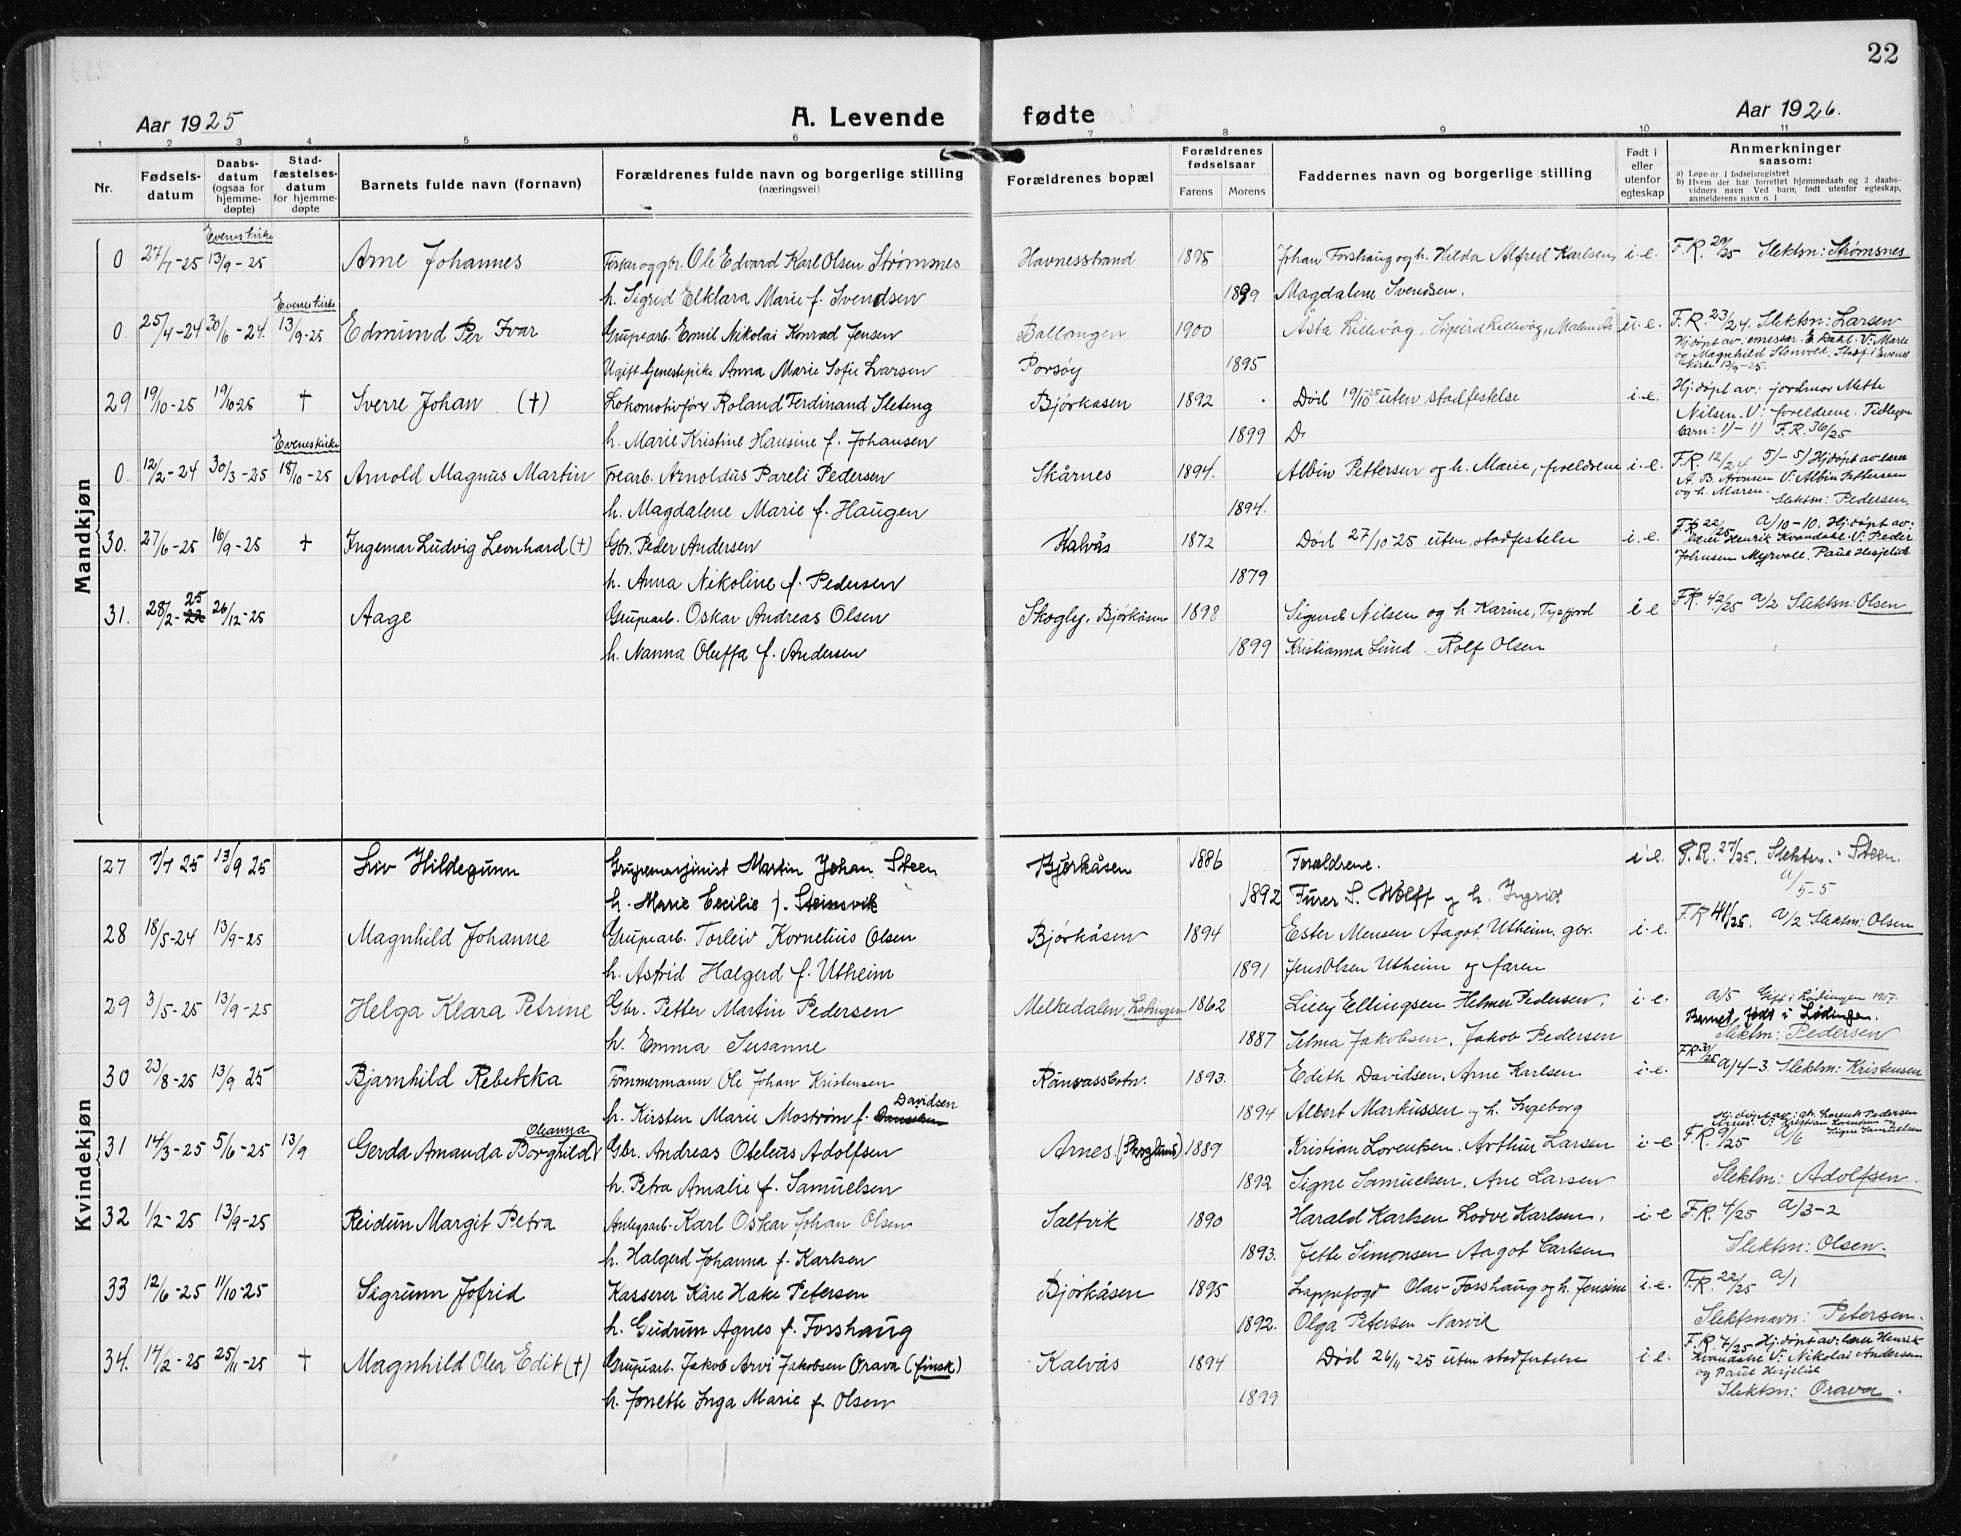 22
Aar 1925
A. Levende fødte
Aar 1926.
1 2 3 4 5 6 7 8 9 10 11
Nr.
Fødsels-datum
Daabs-datum (ogsaa for hjemme-døpte)
Stad-fæstelses-datum for hjemme-døpte
Barnets fulde navn (fornavn)
Forældrenes fulde navn og borgerlige stilling (næringsvei)
Forældrenes bopæl
Forældrenes fødselsaar
Farens Morens
Faddernes navn og borgerlige stilling
Født i eller utenfor egteskap
Anmerkninger saasom:
a) Løpe-nr. i fødselsregistret
b) Hvem der har forrettet hjemmedaab og 2 daabs-vidners navn Ved barn, født utenfor egteskap, anmelderens navn o. l
Mandkjøn
Eveneskirke
0 27/7-25 13/9-25 Arne Johannes Ole Edvard Karl Olsen Strømsnes Havnesstrand 1895 Johan Forshaug og h. Hilda Alfred Karlsen i.e. F.R. 29/25 Slektsn: Strømsnes
h. Sigrid Elklara Marie f. Svendsen 1899 Magdalene Svendsen.
Eveneskirke
0. 25/4-24 30/6-24. 13/9-25 Edmund Per Ivar Grupearb. Emil Nikolai Konrad Jensen Ballangen 1900 Asta Lillevåg, Sigurd Lillevåg, u.e. F.R. 23/24. Slektsn: Larsen
Hj.døpt av: emissær. E. Dahl. V: Marie
og Magnhild Stenvold. Stadf. i Evenes
kirke 13/9-25.
Ugift tjenestepike Anna Marie Sofie Larsen Porsøy 1895
29 19/10-25 19/10-25 † Sverre Johan (†) Lokomotivfører Roland Ferdinand Sleteng Bjørkåsen 1892 Død 19/10-25 uten stadfestelse i.e. Hj.døpt av: jordmor Mette
Nilsen. V: foreldrene. Tidligere
barn: 1)-1) F.R. 36/25
h. Marie Kristine Hansine f. Johansen 1899 D.
Eveneskirke
0. 12/2-24 30/3-25 18/10-25 Arnold Magnus Martin Arnoldus Pareli Pedersen Skårnes 1894. Albin Pettersen og h. Marie, foreldrene i.e. F.R. 12/24 5)-5) Hj.døpt av lærer
A. B. Aronsen V: Albin Pettersen
og h. Maren.
Slektsn: Pedersen.
h. Magdalene Marie f. Haugen 1894.
30. 27/6-25 16/9-25 † Ingemar Ludvig Leonhard (†) Gbr. Peder Andersen Kalvås 1872 Død 27/10-25 uten stadfestelse i.e. F.R. 22/25 a/10-10. Hj.døpt av:
lærer Henrik Kvandahl. V: Peder
Johnsen Myrvoll, Paul Hesjelid.
h. Anna Nikoline f. Pedersen 1879
31. 28/2-25 26/12-25 Aage Grupearb. Oskar Andreas Olsen Skogly, Bjørkåsen 1898 Sigurd Nilsen og h. Karine, Tysfjord i e F.R. 42/25 a/2 Slektsn: Olsen
h. Nanna Oluffa f. Andersen 1899 Kristianna Lund. Rolf Olsen
Kvindekjøn
27 7/7 25 13/9 25 Liv Hildegunn Grupemaskinist Martin Johan Steen Bjørkåsen 1886 Forældrene. i e. F.R. 27/25. Slektsn.: Steen.
a/5-5
h. Marie Cecilie f. Steinsvik 1892 Furer S. Wolff og h. Ingrid
28 18/5-24 13/9-25 Magnhild Johanne Grupearb. Torleiv Kornelius Olsen Bjørkåsen 1894 Ester Mensen Aagot Utheim, gbr. i.e. F.R 41/25. a/2 Slektsn: Olsen
h. Astrid Halgerd f. Utheim 1891 Jens Olsen Utheim og faren
29 3/5-25 13/9-25 Helga Klara Petrine Gbr. Petter Martin Pedersen Melkedalen, Lødingen 1862 Lilly Ellingsen Helmer Pedersen, i.e. a/5 Gift i Lødingen 1907.
Barnet født i Lødingen.
Slektsn: Pedersen
h. Emma Susanne 1887 Selma Jakobsen, Jakob Pedersen
30 23/8-25 13/9 25 Bjarnhild Rebekka Tømmermann Ole Johan Kristensen Rånvassbotn. 1893. Edith Davidsen, Arne Karlsen i-e. F.R 30/25 a/4-3. Slektsn: Kristensen
h. Kirsten Marie Mostrøm f. Davidsen 1894 Albert Markussen og h. Ingeborg
31 14/3-25 5/6-25 13/9 Gerda Amanda Borghild Oleanna Gbr. Andreas Oteleus Adolfsen Arnes (Skoglund) 1889 Kristian Lorentsen, Arthur Larsen i-e Hj.døpt av: gb. Lorents Pedersen
Arnes. V: Kristian Lorentsen og
Signe Samuelsen
F.R. 9/25 a/6
Slektsn: Adolfsen.
h. Petra Amalie f. Samuelsen 1892 Signe Samuelsen, Ane Larsen
32 1/2-25 13/9-25 Reidun Margit Petra Anlegsarb. Karl Oskar Johan Olsen Saltvik 1890 Harald Karlsen Lodve Karlsen, i-e F.R. 4/25 a/3-2
Slektsn: Olsen.
h. Halgerd Johanna f. Karlsen 1893. Jette Simonsen Aagot Carlsen
33 12/6-25 11/10-25 Sigrunn Jofrid Kasserer Kåre Hake Petersen Bjørkåsen 1895 Lappefogd Olav Forshaug og h. Jensine i-e. F.R. 22/25 a/1
Slektsnavn: Petersen.
h. Gudrun Agnes f. Forshaug 1892. Olga Petersen Narvik
34. 14/2-25 25/11-25 † Magnhild Olea Edit (†) Grupearb. Jakob Arvi Jakobsen Orava (finsk) Kalvås 1894 Død 26/11-25 uten stadfestelse i.e. F.R. 7/25 Hj.døpt av: lærer Henrik
Kvandahl V: Nikolai Andersen
og Paul Hesjelid
Slektsn: Orava.
h. Jonette Inga Marie f Olsen 1899